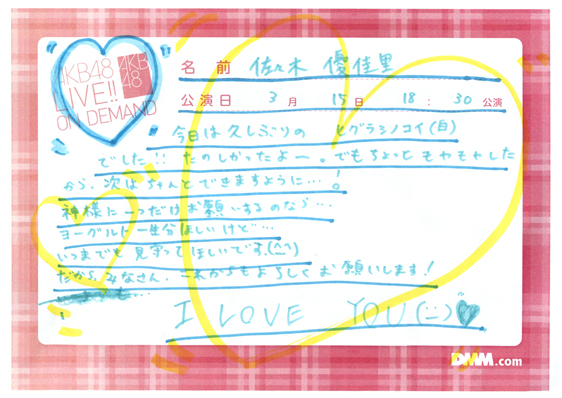 AKB48
LIVE!!
ON DEMAND
AKB
48
名 前 佐々木 優佳里
公演日 3月 15日 18:30公演
今日は久しぶりの ヒグラシノコイ(自)
でした!! たのしかったよー。でもちょっとモヤモヤした
から、次はちゃんとできますように…!
神様に一つだけお願いするのなら…
ヨーグルト一生分ほしいけど…
いつまでも見守ってほしいです(^^)
だから、みなさん、これからもよろしくお願いします!
I LOVE YOU(ニ)
DMM.com